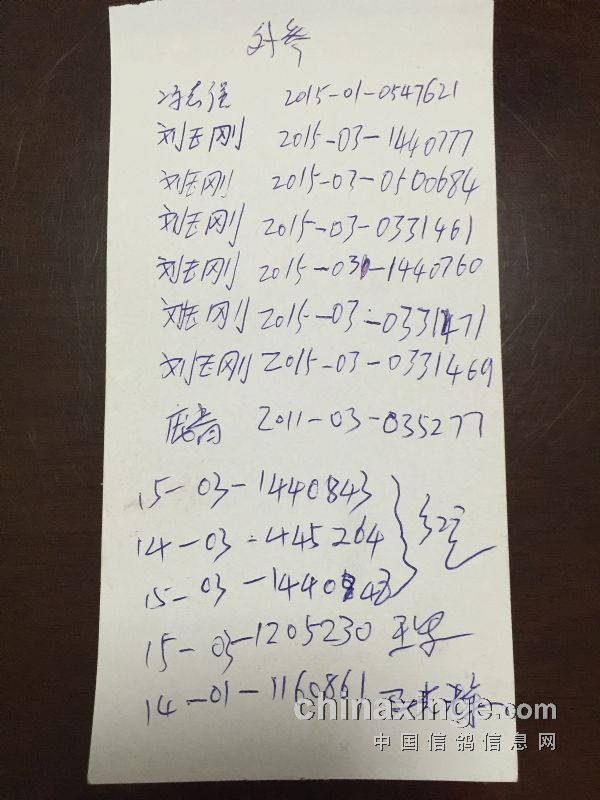 2015-01-0547621
刘玉刚 2015-03-1440777
刘玉刚 2015-03-0500684
刘玉刚 2015-03-0331461
刘玉刚 2015-03-1440760
刘玉刚 2015-03-0331471
刘玉刚 2015-03-0331469
2011-03-035277
15-03-1440843
14-03-445264
15-03-1440
15-03-1205230
14-01-1160861
chinaxinge.com
中国信鸽信息网